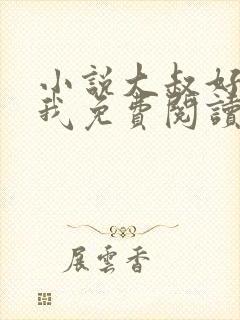 小說大叔好
我免費閱讀
展雲香